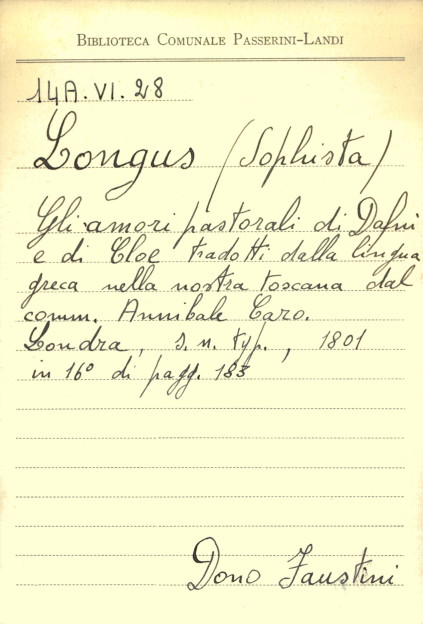 BIBLIOTECA COMUNALE PASSERINI-LANDI
14A.VI.28
Longus (Sophista)
Gli amori pastorali di Dafni
e di Cloe tradotti dalla lingua
greca nella nostra toscana dal
comm. Annibale Caro.
Londra, s. n. typ., 1801
in 16° di pagg. 183
Dono Faustini